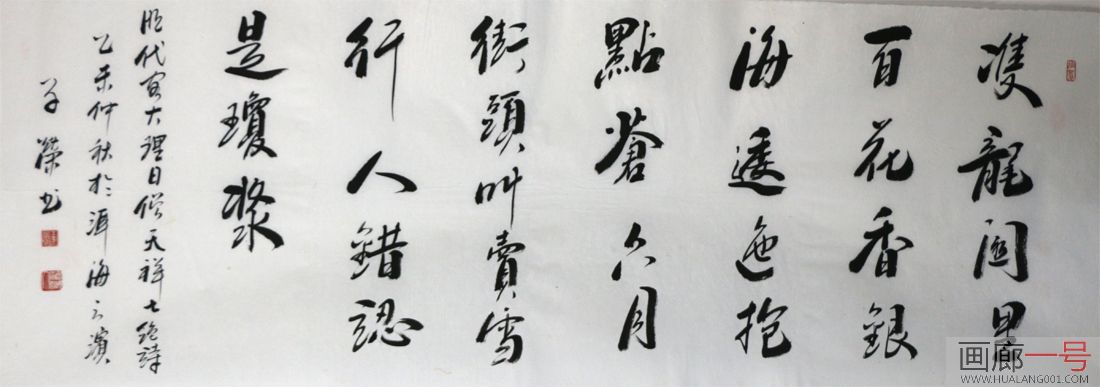 雙龍関裏
百花香銀
海逶迤抱
點蒼六月
街頭叫賣雪
行人錯認
是瓊漿
明代寓大理日僧天祥七絶詩
乙未仲秋於洱海之濱
榮书
画廊一号
WWW.HUALANG001.COM